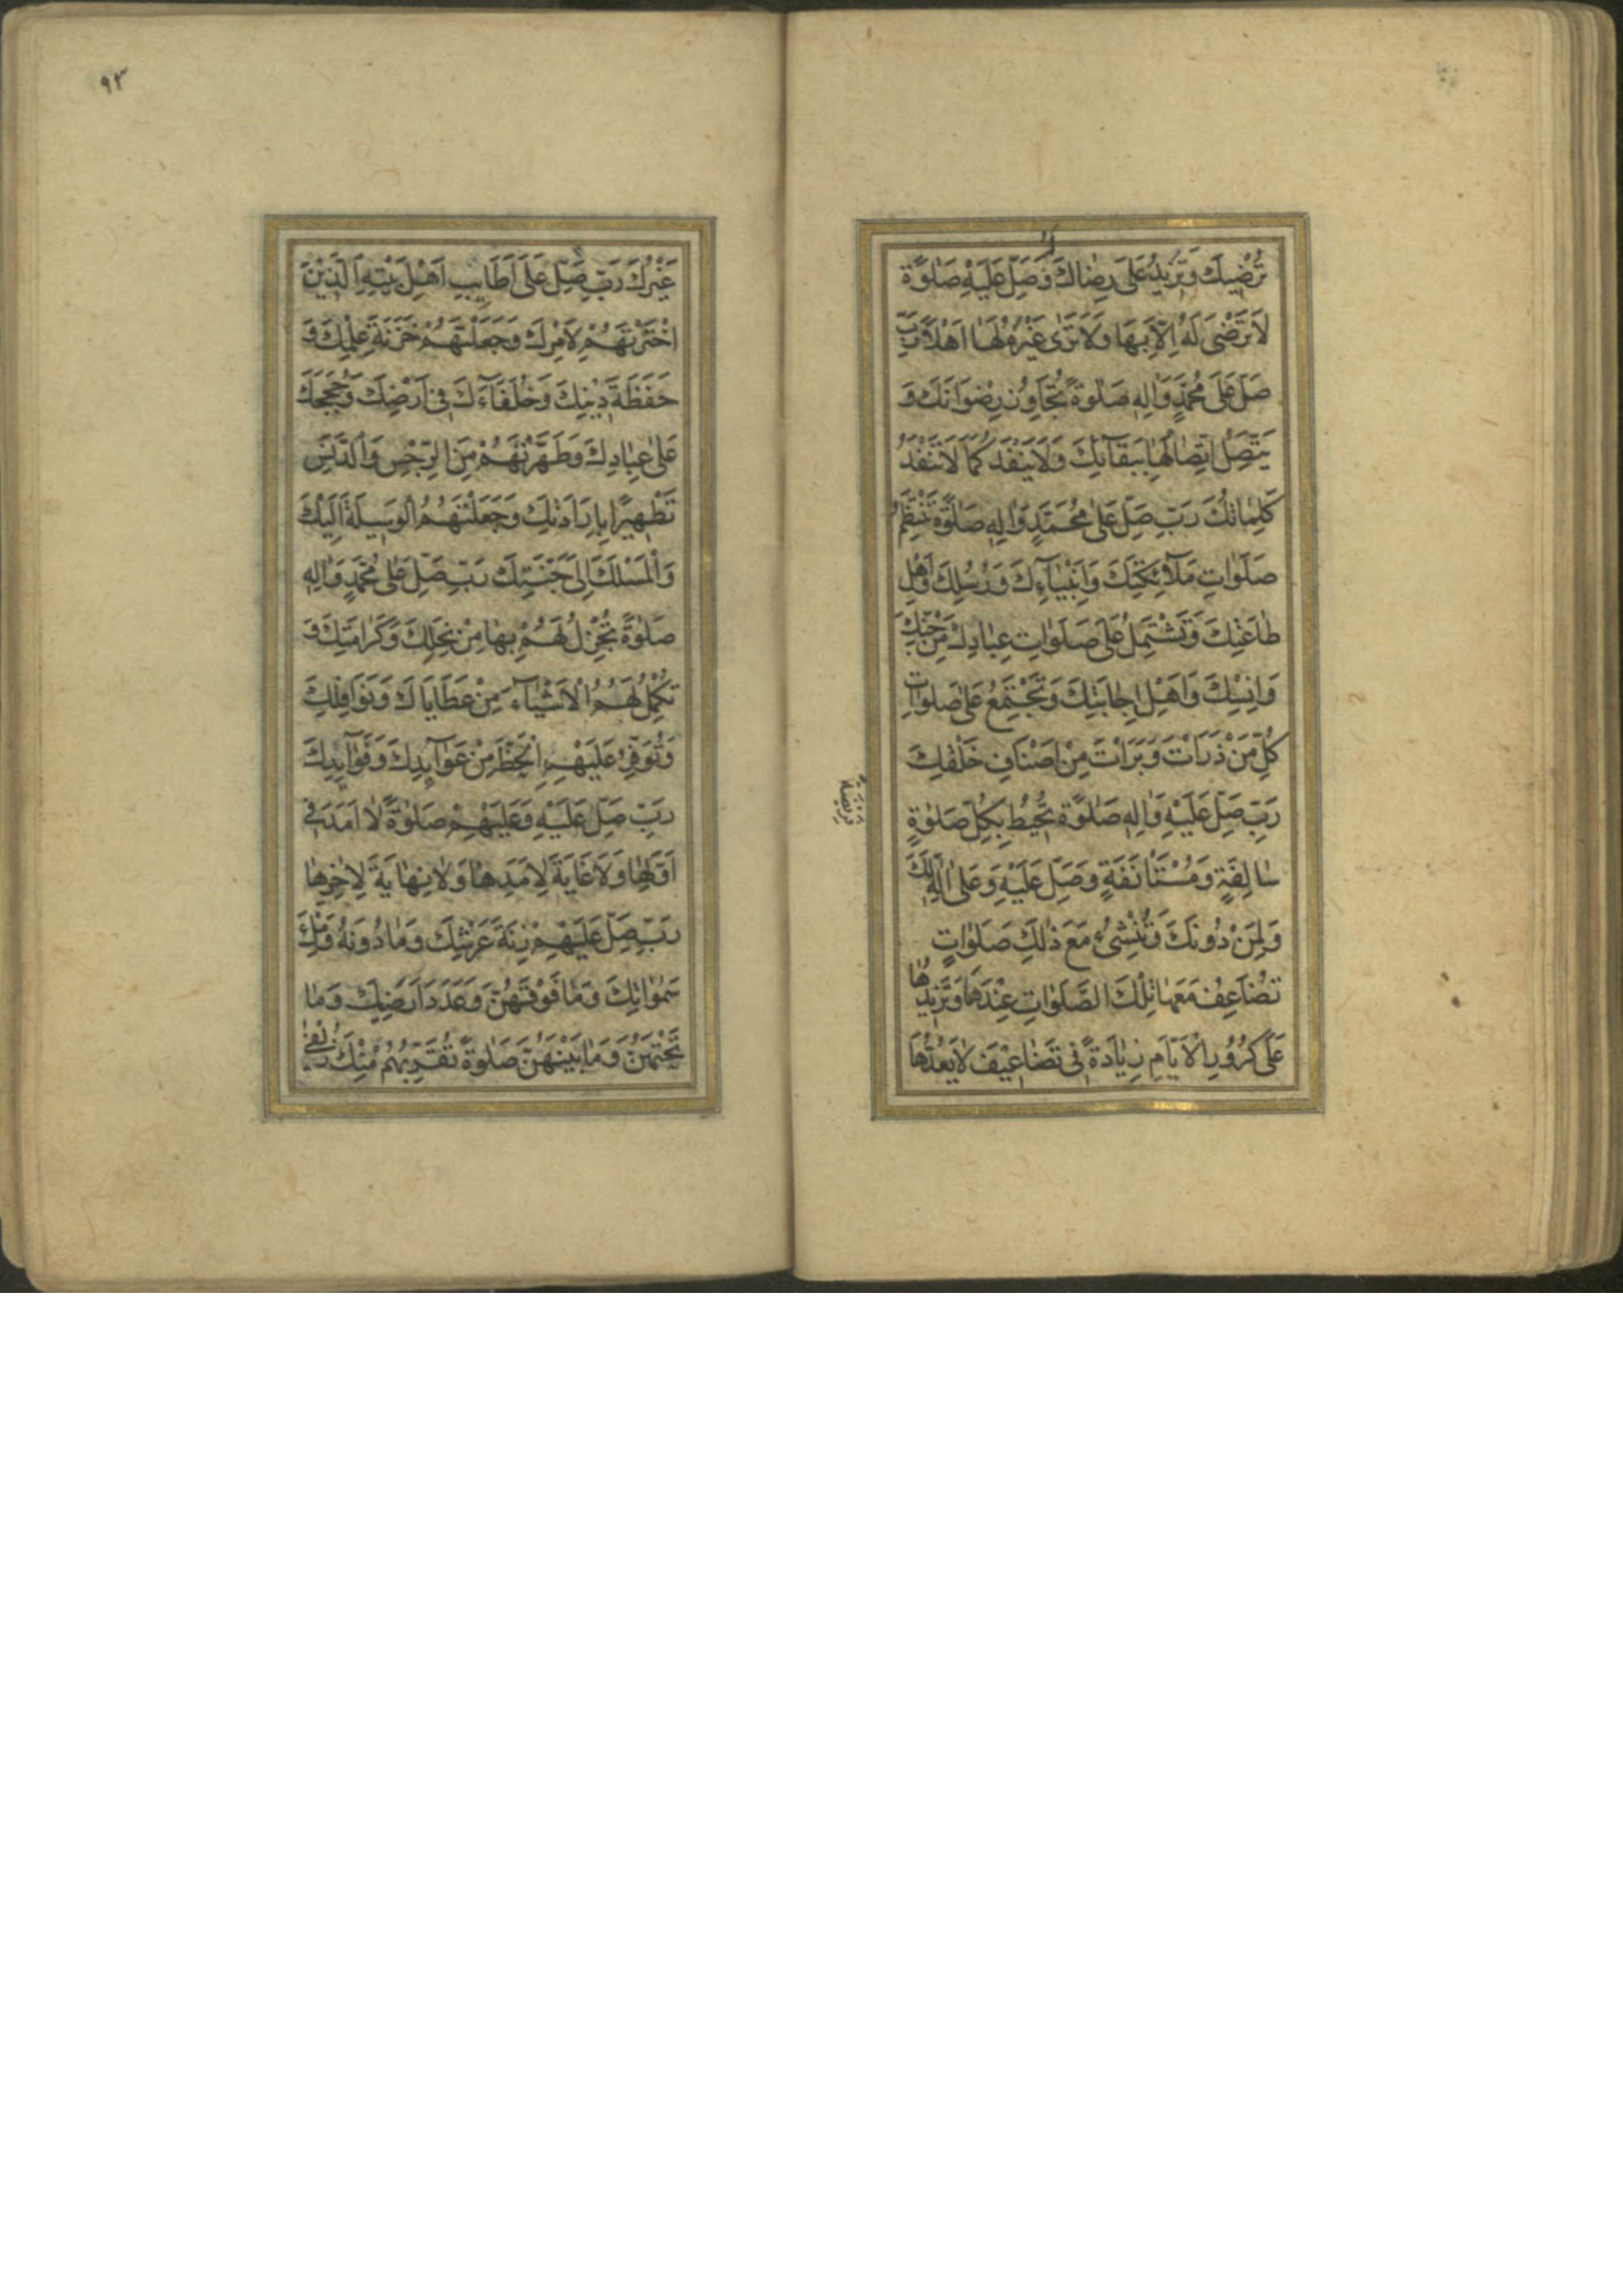 تُرْضِيكَ وَتَزِيدُ عَلَى رِضَاكَ وَصَلِّ عَلَيْهِ صَلٰوةً
لَا تَرْضَى لَهُ اِلَّا بِهَا وَلَا تَرٰى غَيْرَهُ لَهَا اَهْلًا رَبِّ
صَلِّ عَلَى مُحَمَّدٍ وَاٰلِهِ صَلٰوةً تُجَاوِزُ رِضْوَانَكَ وَ
يَتَّصِلُ اتِّصَالُهَا بِبَقَآئِكَ وَلَا يَنْفَدُ كَمَا لَا تَنْفَدُ
كَلِمَاتُكَ رَبِّ صَلِّ عَلٰى مُحَمَّدٍ وَاٰلِهِ صَلٰوةً تَنْتَظِمُ
صَلَوَاتِ مَلَآئِكَتِكَ وَاَنْبِيَآءِكَ وَرُسُلِكَ وَاَهْلِ
طَاعَتِكَ وَتَشْتَمِلُ عَلَى صَلَوَاتِ عِبَادِكَ مِنْ جِنِّكَ
وَاِنْسِكَ وَاَهْلِ اِجَابَتِكَ وَتَجْتَمِعُ عَلٰى صَلٰوةِ
كُلِّ مَنْ ذَرَاْتَ وَبَرَاْتَ مِنْ اَصْنَافِ خَلْقِكَ
رَبِّ صَلِّ عَلَيْهِ وَاٰلِهِ صَلٰوةً تُحِيْطُ بِكُلِّ صَلٰوةٍ
سَالِفَةٍ وَمُسْتَاْنَفَةٍ وَصَلِّ عَلَيْهِ وَعَلٰى اٰلِهِ لَكَ
وَلِمَنْ دُونَكَ وَتُنْشِئُ مَعَ ذٰلِكَ صَلَوَاتٍ
تُضَاعِفُ مَعَهَا تِلْكَ الصَّلَوَاتِ عِنْدَهَا وَتَزِيْدُهَا
عَلَى كُرُوْرِ الْاَيَّامِ زِيَادَةً فِى تَضَاعِيْفَ لَا يَعُدُّهَا
٩٣
غَيْرُكَ رَبِّ صَلِّ عَلَى اَطَايِبِ اَهْلِ بَيْتِهِ الَّذِيْنَ
اخْتَرْتَهُمْ لِاَمْرِكَ وَجَعَلْتَهُمْ خَزَنَةَ عِلْمِكَ وَ
حَفَظَةَ دِيْنِكَ وَخُلَفَآءَكَ فِى اَرْضِكَ وَحُجَجَكَ
عَلٰى عِبَادِكَ وَطَهَّرْتَهُمْ مِنَ الرِّجْسِ وَالدَّنَسِ
تَطْهِيْرًا بِاِرَادَتِكَ وَجَعَلْتَهُمُ الْوَسِيْلَةَ اِلَيْكَ
وَالْمَسْلَكَ اِلٰى جَنَّتِكَ رَبِّ صَلِّ عَلٰى مُحَمَّدٍ وَاٰلِهِ
صَلٰوةً تُجْزِلُ لَهُمْ بِهَا مِنْ نِحَلِكَ وَكَرَامَتِكَ وَ
تُكْمِلُ لَهُمُ الْاَشْيَآءَ مِنْ عَطَايَاكَ وَنَوَافِلِكَ
وَتُوَفِّرُ عَلَيْهِمِ الْحَظَّ مِنْ عَوَآئِدِكَ وَفَوَآئِدِكَ
رَبِّ صَلِّ عَلَيْهِ وَعَلَيْهِمْ صَلٰوةً لَا اَمَدَ فِى
اَوَّلِهَا وَلَا غَايَةَ لِاَمَدِهَا وَلَا نِهَايَةَ لِاٰخِرِهَا
رَبِّ صَلِّ عَلَيْهِمْ زِنَةَ عَرْشِكَ وَمَا دُوْنَهُ وَمِلْءَ
سَمٰوَاتِكَ وَمَا فَوْقَهُنَّ وَعَدَدَ اَرَضِيكَ وَمَا
تَحْتَهُنَّ وَمَا بَيْنَهُنَّ صَلٰوةً تُقَرِّبُهُمْ مِنْكَ زُلْفٰى